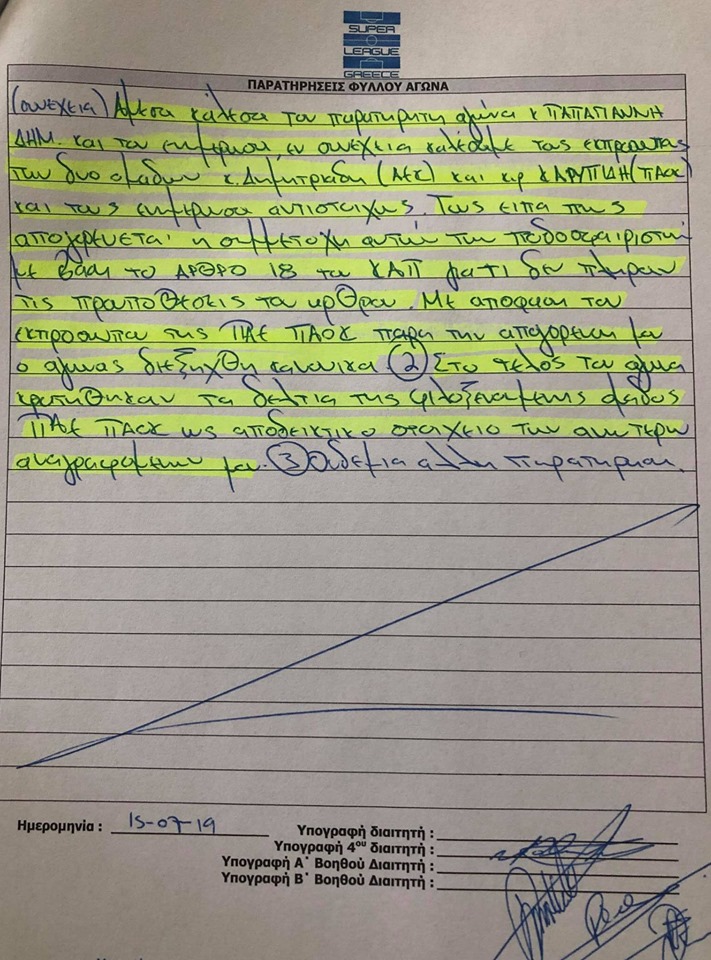 SUPER
LEAGUE
GREECE
ΠΑΡΑΤΗΡΗΣΕΙΣ ΦΥΛΛΟΥ ΑΓΩΝΑ
(συνεχεια) Αμεσα καλεσα τον παρατηρητη αγωνα κ ΠΑΠΑΓΙΑΝΝΗ
ΔΗΜ. και τον ενημερωσα, εν συνεχεια καλεσαμε τους εκπροσωπους
των δυο ομαδων κ. Δημητριαδη (ΑΕΚ) και κρ ΚΑΡΥΠΙΔΗ (ΠΑΟΚ)
και τους ενημερωσα αντιστοιχως. Τους ειπα πως
απαγορευεται η συμμετοχη αυτων των ποδοσφαιριστων
με βαση το ΑΡΘΡΟ 18 του ΚΑΠ γιατι δεν πληρουν
τις προυποθεσεις του αρθρου. Με αποφαση του
εκπροσωπου της ΠΑΕ ΠΑΟΚ παρα την απαγορευση μου
ο αγωνας διεξηχθη κανονικα. 2 Στο τελος του αγωνα
κρατηθηκαν τα δελτια της φιλοξενουμενης ομαδος
ΠΑΕ ΠΑΟΚ ως αποδεικτικο στοιχειο των ανωτερω
αναγραφομενων μου. 3 Ουδεμια αλλη παρατηρηση.
Ημερομηνια : 15-07-19
Υπογραφή διαιτητή :
Υπογραφή 4ου διαιτητή :
Υπογραφή Α΄ Βοηθού Διαιτητή :
Υπογραφή Β΄ Βοηθού Διαιτητή :